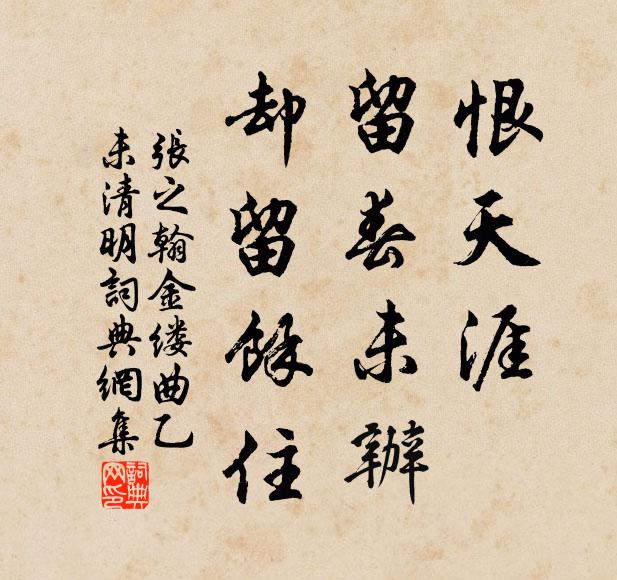 恨天涯
留春未辦
却留餘住
張之翰金缕曲乙
未清明詞典網集
詞典网印